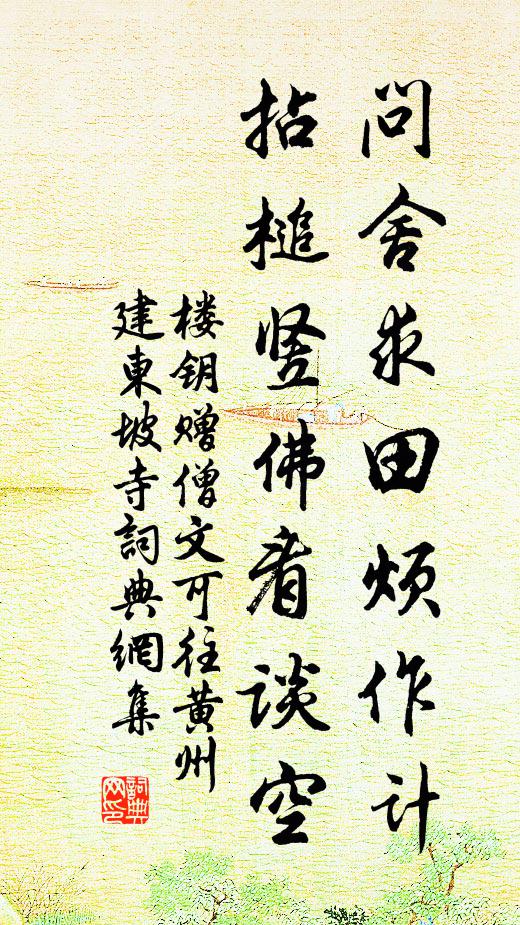 问舍求田烦作计
拈槌竖佛看谈空
楼钥赠僧文可往黄州
建東坡寺詞典網集
詞典
网印